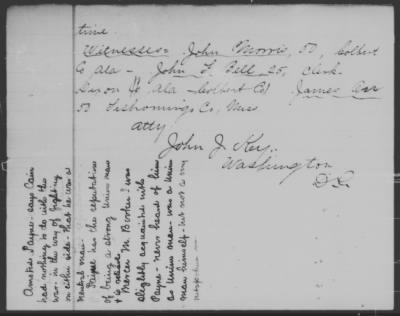 time.
Witnesses - John C Morris, 50, Colbert
Co Ala - John F. Bell - 25, Clerk
Dixon St Ala - Colbert Co / James Orr
53 Tishomingo Co, Miss
Atty
John J. Key.
Washington
D.C.
Payne - says Cain
had nothing to do with the
war - in the way of fighting
on either side - that he was a
neutral man -
Payne has the reputation
of being a strong Union man
Mercer M. Booker I was
slightly acquainted with
Payne - never heard of him
as Union man - was a Union
man himself - but not to my